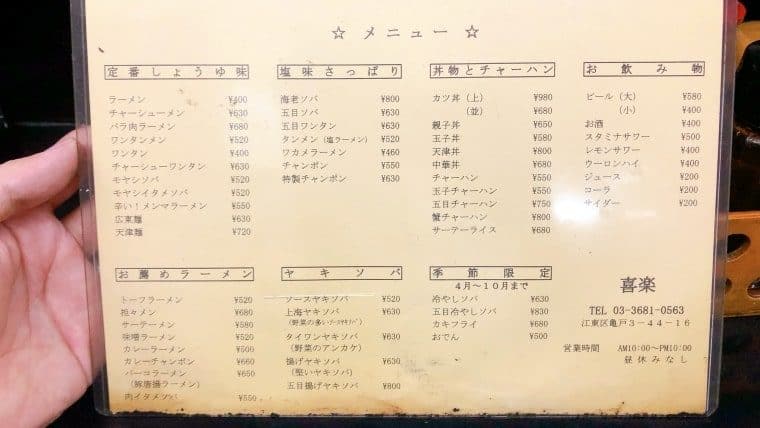 ☆ メニュー ☆
定番しょうゆ味
ラーメン ¥400
チャーシューメン ¥630
バラ肉ラーメン ¥680
ワンタンメン ¥520
ワンタン ¥400
チャーシューワンタン ¥630
モヤシソバ ¥520
モヤシイタメソバ ¥520
辛い!メンマラーメン ¥550
広東麺 ¥630
天津麺 ¥720
塩味さっぱり
海老ソバ ¥800
五目ソバ ¥630
五目ワンタン ¥630
タンメン (塩ラーメン) ¥520
ワカメラーメン ¥460
チャンポン ¥550
特製チャンポン ¥630
丼物とチャーハン
カツ丼(上) ¥980
(並) ¥680
親子丼 ¥650
玉子丼 ¥580
天津丼 ¥800
中華丼 ¥680
チャーハン ¥550
玉子チャーハン ¥550
五目チャーハン ¥750
蟹チャーハン ¥800
サーテーライス ¥680
お飲み物
ビール(大) ¥580
(小) ¥400
お酒 ¥400
スタミナサワー ¥500
レモンサワー ¥400
ウーロンハイ ¥400
ジュース ¥200
コーラ ¥200
サイダー ¥200
お薦めラーメン
トーフラーメン ¥520
担々メン ¥680
サーテーメン ¥580
味噌ラーメン ¥520
カレーラーメン ¥500
カレーチャンポン ¥660
パーコラーメン ¥650
(豚唐揚ラーメン)
肉イタメソバ ¥550
ヤキソバ
ソースヤキソバ ¥520
上海ヤキソバ ¥630
(野菜の多いソースヤキソバ)
タイワンヤキソバ ¥630
(野菜のアンカケ)
揚げヤキソバ ¥630
(堅いヤキソバ)
五目揚げヤキソバ ¥800
季節限定
4月〜10月まで
冷やしソバ ¥630
五目冷やしソバ ¥830
カキフライ ¥680
おでん ¥500
喜楽
TEL 03-3681-0563
江東区亀戸3-44-16
営業時間 AM10:00〜PM10:00
昼休みなし